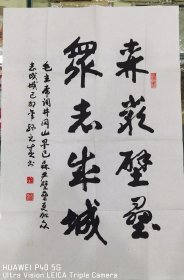 森严壁垒
众志成城
毛主席词井冈山早已森严壁垒更加众
志成城己
HUAWEI P40 5G
Ultra Vision LEICA Triple Camera